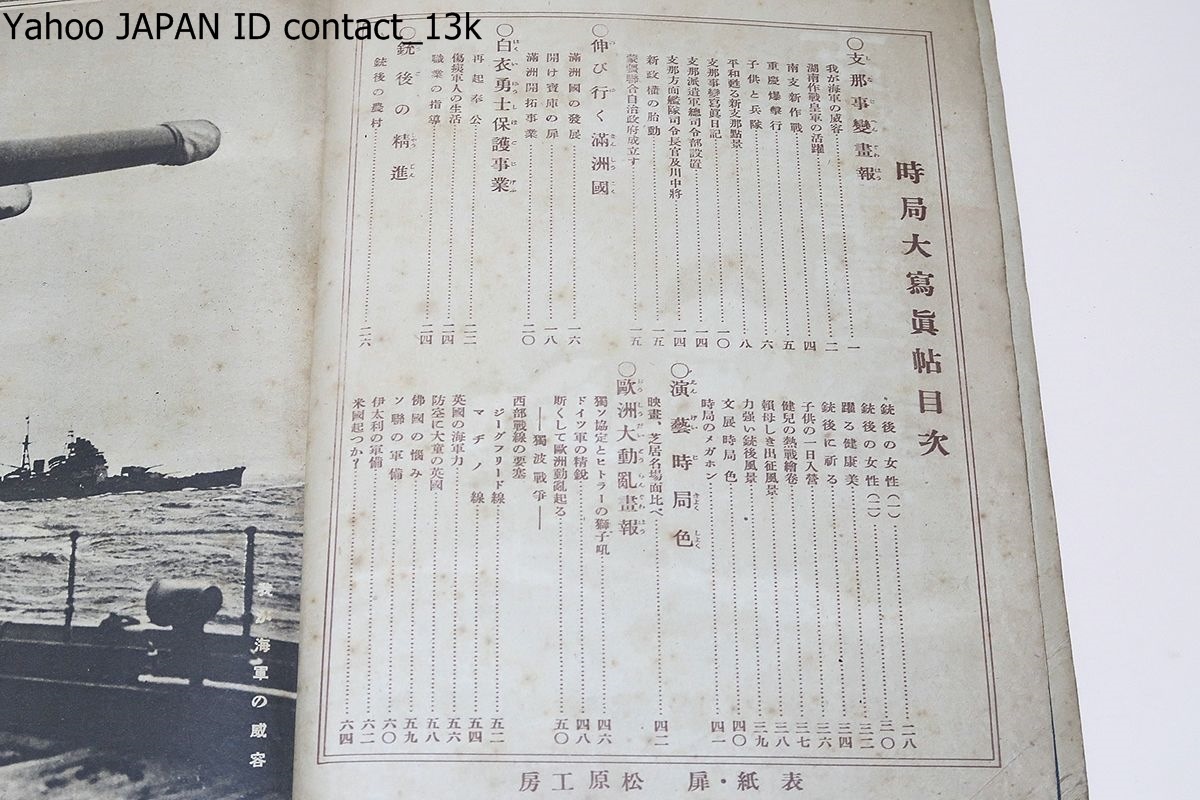 Yahoo JAPAN ID contact_13k
時局大寫眞帖目次
○支那事變畫報
我が海軍の威容 一
湖南作戰皇軍の活躍 二
南支新作戰 四
重慶爆擊行 五
子供と兵隊 六
平和甦る新支那點景 八
支那事變寫眞日記 一〇
支那派遣軍總司令部設置 一四
支那方面艦隊司令長官及川中將 一四
新政權の胎動 一五
蒙疆聯合自治政府成立す 一五
○伸び行く滿洲國
滿洲國の發展 一六
開け寶庫の扉 一八
滿洲開拓事業 二〇
○白衣勇士保護事業
再起奉公 二二
傷痍軍人の生活 二四
職業の指導 二四
○銃後の精進
銃後の農村 二六
銃後の女性(一) 二八
銃後の女性(二) 三〇
躍る健康美 三二
銃後に祈る 三四
子供の一日入營 三六
健兒の熱戰繪卷 三七
賴母しき出征風景 三八
力强い銃後風景 三九
文展時局色 四〇
時局のメガホン 四一
○演藝時局色
映畫、芝居名場面比べ 四二
○歐洲大動亂畫報
獨ソ協定とヒトラーの獅子吼 四六
ドイツ軍の精銳 四八
斷くして歐洲動亂起る 五〇
――獨波戰爭――
西部戰線の要塞
ジーグフリード線 五二
マヂノ線 五四
英國の海軍力 五六
防空に大童の英國 五八
佛國の惱み 五九
ソ聯の軍備 六〇
伊太利の軍備 六二
米國起つか? 六四
表紙・扉 松原工房
我が海軍の威容